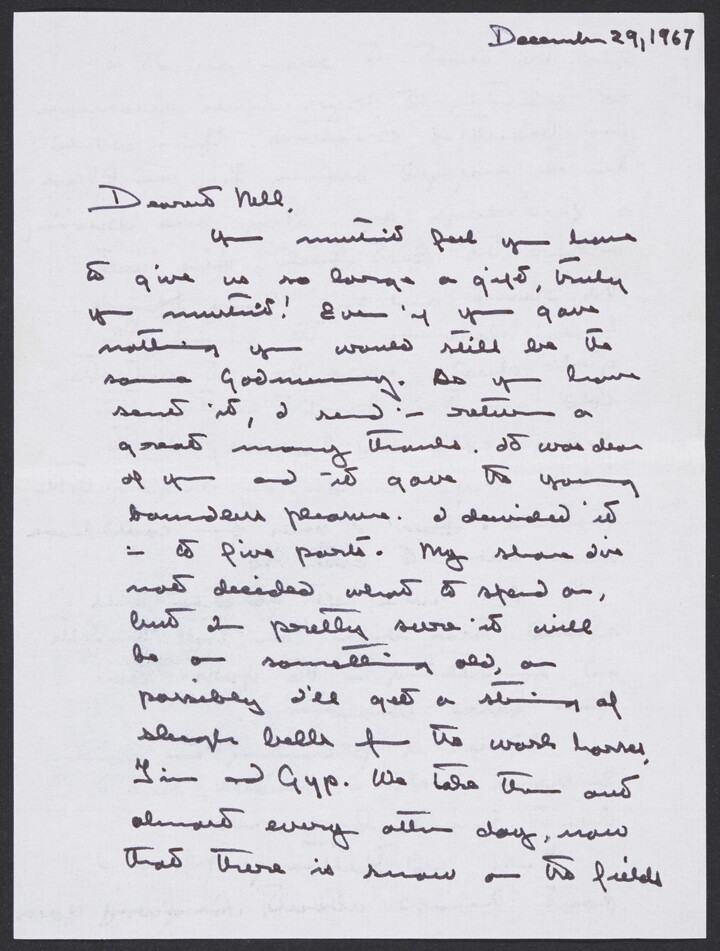 December 29, 1967
Dearest Nell,
You mustn't feel you have
to give us so large a gift, truly
you mustn't! Even if you gave
nothing you would still be the
same Godmummy. As you have
sent it, I send in return a
great many thanks. It was dear
of you and it gave to young
pleasure. I divided it
in to five parts. My share I've
not decided what to spend on,
but I'm pretty sure it will
be on something old, or
possibly I'll get a string of
sleigh bells for the work horses,
Jim and Gyp. We take them out
almost every other day, now
that there is snow on the fields